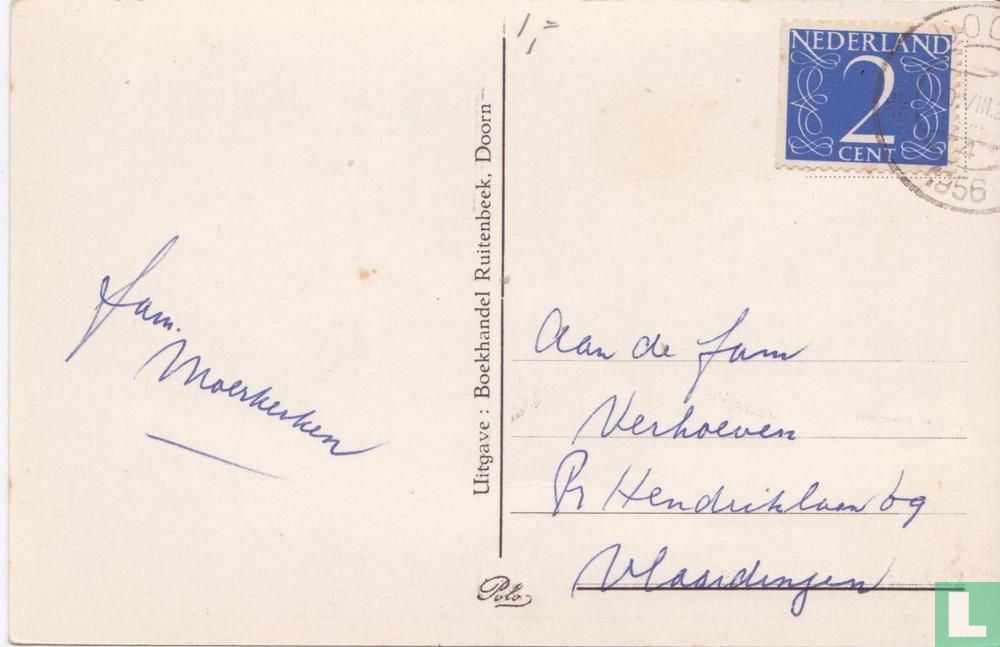 1,=
NEDERLAND
2
CENT
1956
fam.
Moerkerken
Uitgave : Boekhandel Ruitenbeek, Doorn
Aan de fam
Verhoeven
Pr Hendriklaan 69
Vlaardingen
Polo
L